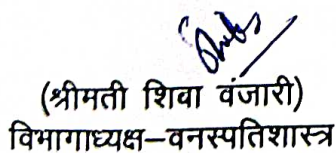 (श्रीमती शिवा वंजारी)
विभागाध्यक्ष–वनस्पतिशास्त्र